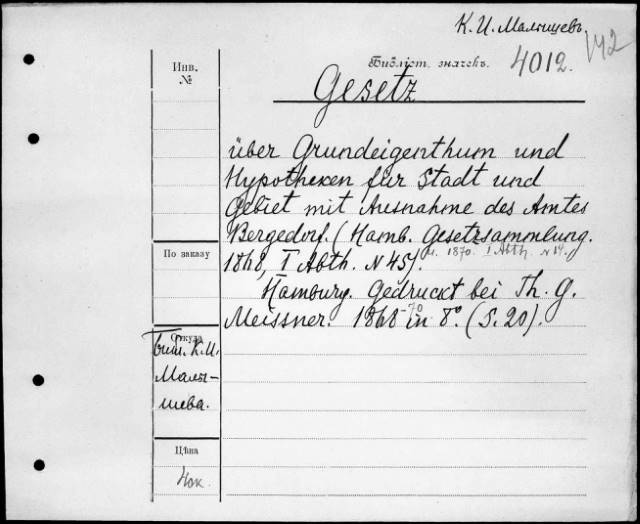 К. И. Малышевъ.
142
Инв.
№
Библіот. значекъ.
4012.
Gesetz
über Grundeigenthum und
Hypotheken für Stadt und
Gebiet mit Ausnahme des Amtes
Bergedorf. (Hamb. Gesetzsammlung.
По заказу
1868, I Abth. N 45). u. 1870. I Abth. N 14.
Hamburg. Gedruckt bei Th. G.
Meissner. 1868-70 in 8°. (S. 20).
Откуда
Биб. К. И.
Малы-
шева.
Цѣна